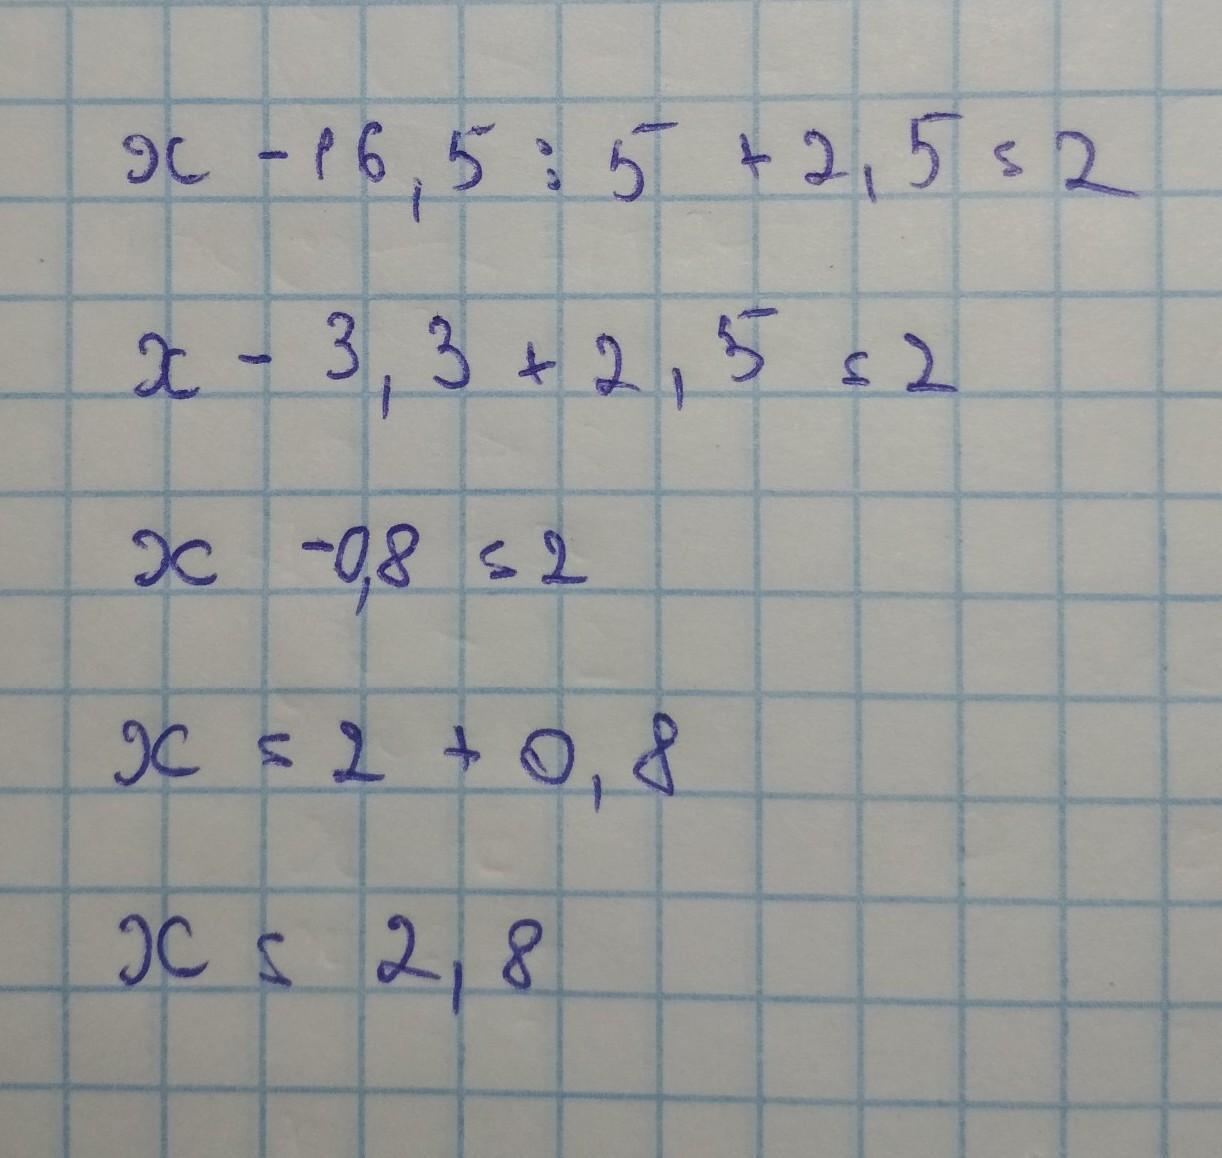 x - 16,5 : 5 + 2,5 = 2
x - 3,3 + 2,5 = 2
x - 0,8 = 2
x = 2 + 0,8
x = 2,8